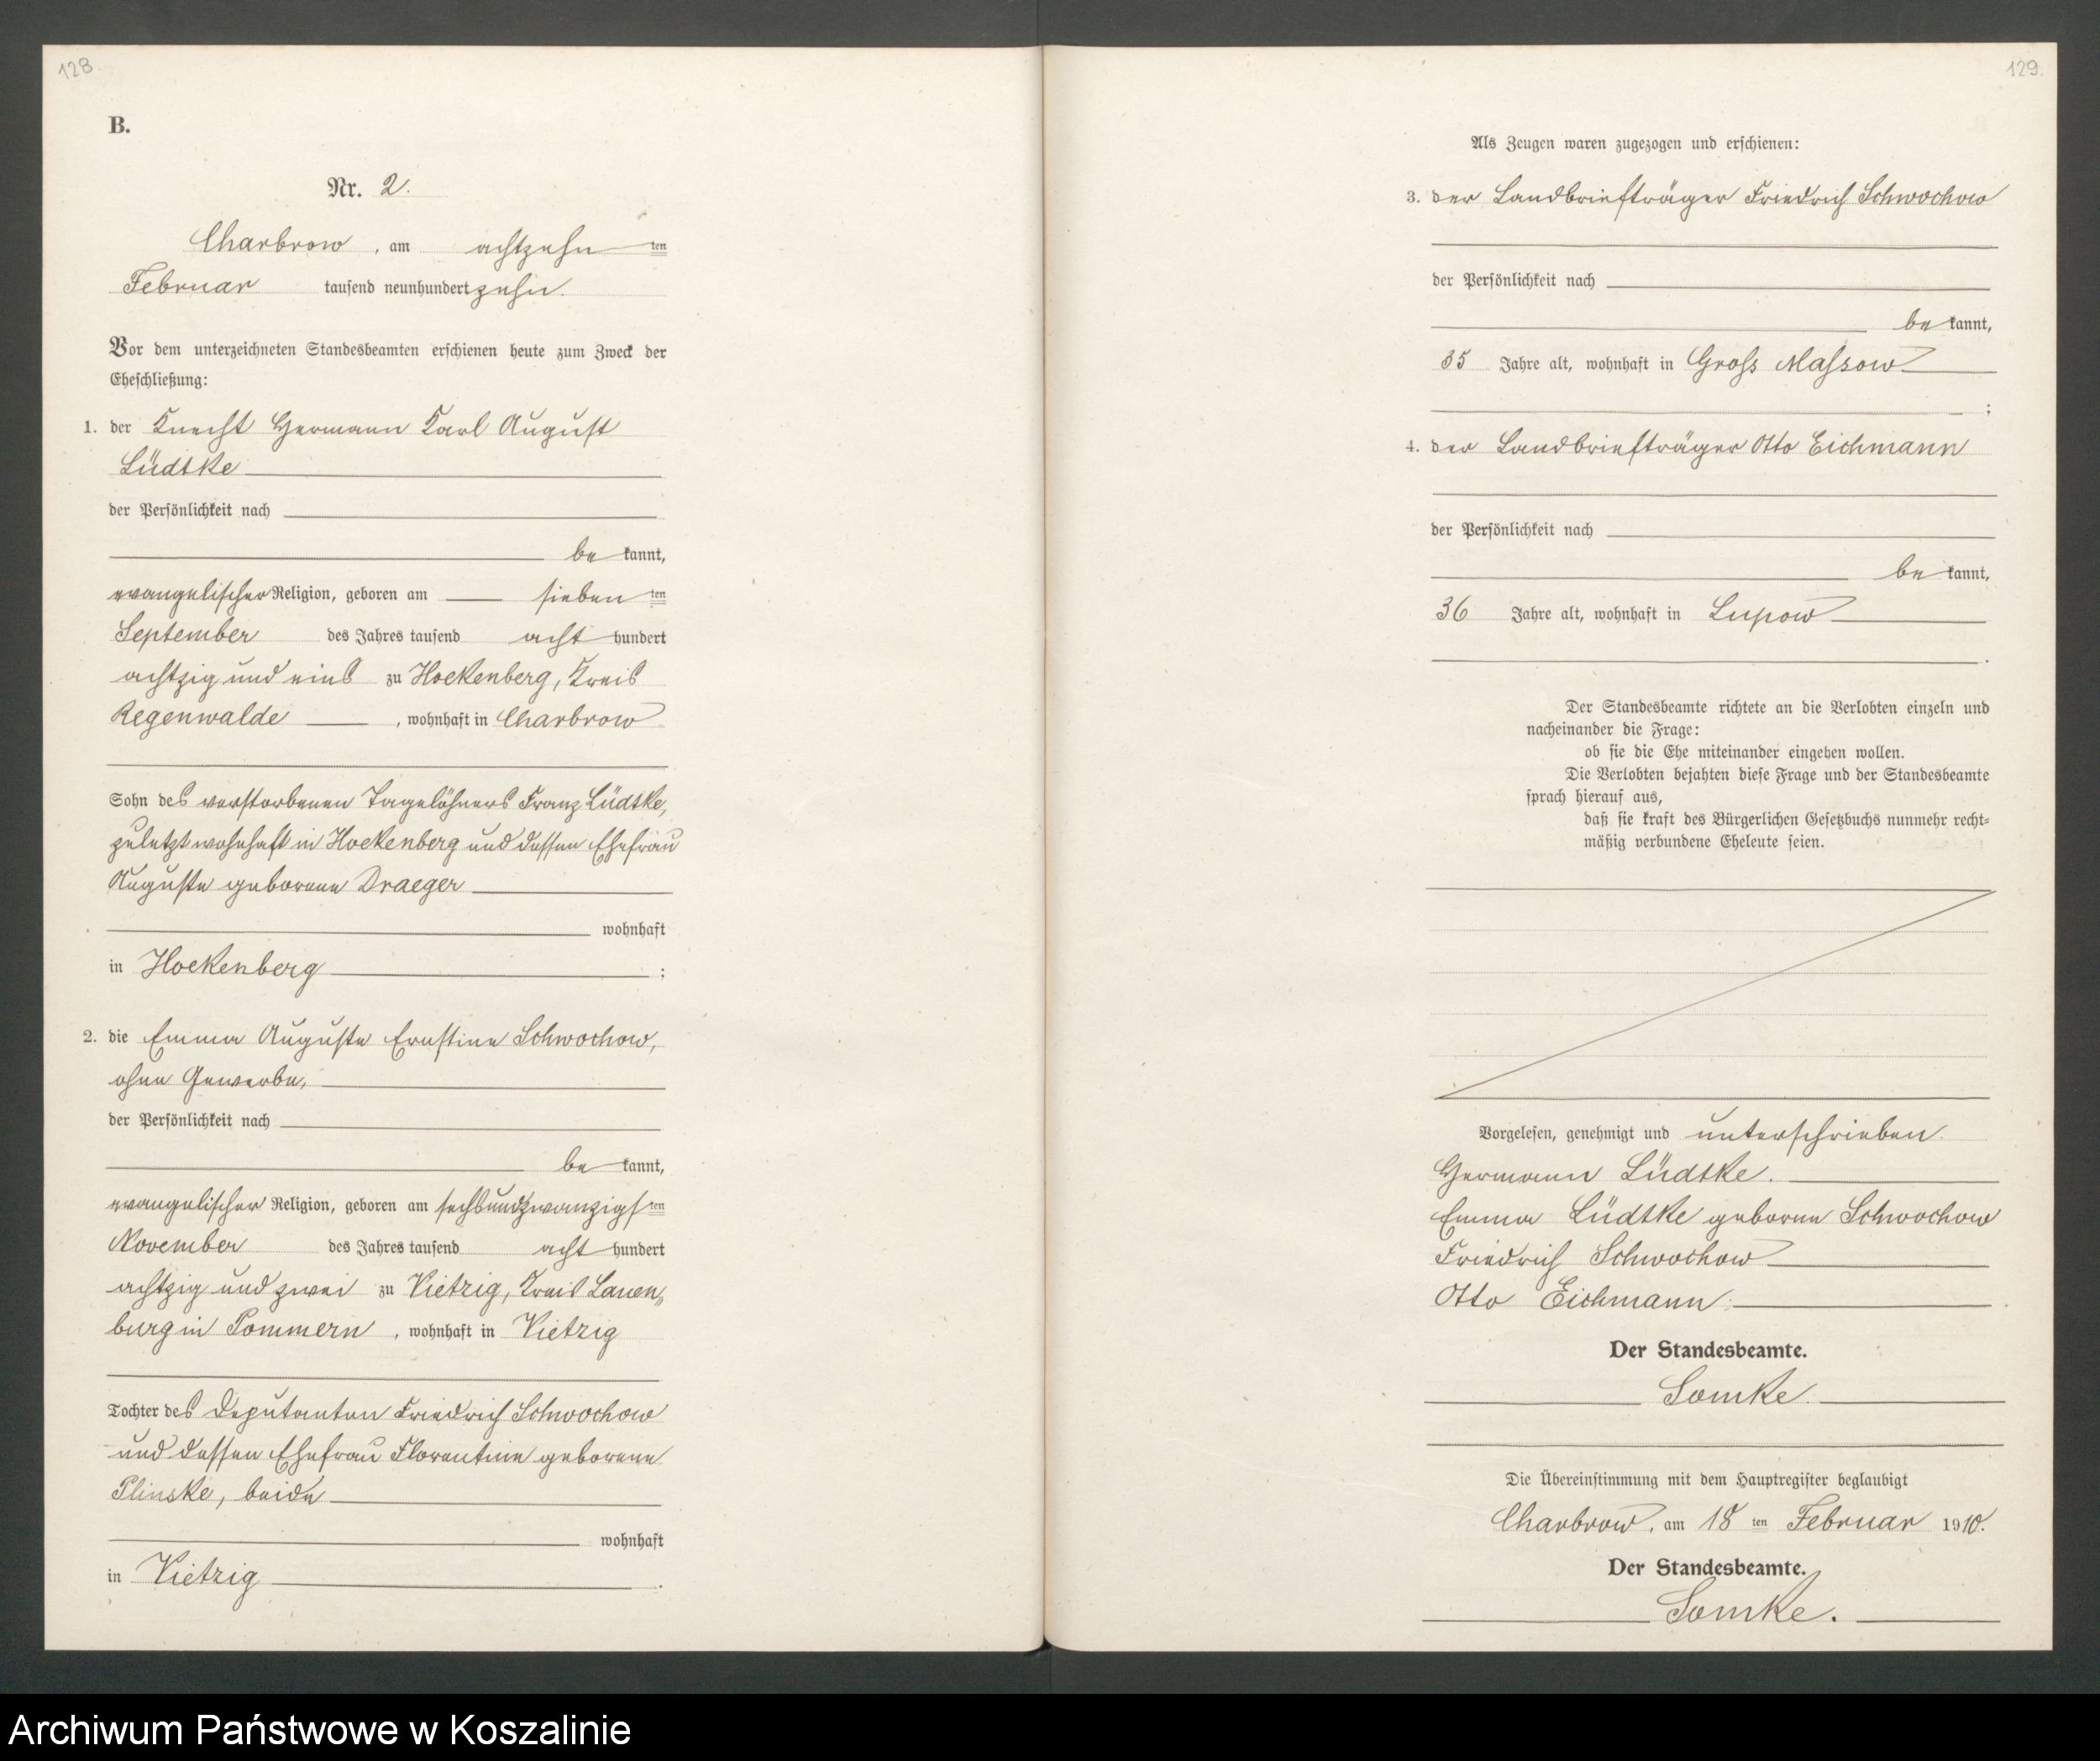 128
B.
Nr. 2.
Charbrow, am achtzehn ten
Februar tausend neunhundert zehn.
Vor dem unterzeichneten Standesbeamten erschienen heute zum Zweck der
Eheschließung:
1. der Knecht Hermann Karl August
Lüdtke
der Persönlichkeit nach
be kannt,
evangelischer Religion, geboren am sieben ten
September des Jahres tausend acht hundert
achtzig und eins zu Hoekenberg, Kreis
Regenwalde, wohnhaft in Charbrow
Sohn des verstorbenen Tagelöhners Franz Lüdtke,
zuletzt wohnhaft in Hoekenberg und dessen Ehefrau
Auguste geborene Draeger
wohnhaft
in Hoekenberg ;
2. die Emma Auguste Ernstine Schwochow,
ohne Gewerbe,
der Persönlichkeit nach
be kannt,
evangelischer Religion, geboren am sechsundzwanzigsten
November des Jahres tausend acht hundert
achtzig und zwei zu Vietzig, Kreis Lauen„
burg in Pommern, wohnhaft in Vietzig
Tochter des Deputanten Friedrich Schwochow
und dessen Ehefrau Florentine geborene
Plinske, beide
wohnhaft
in Vietzig .
129.
Als Zeugen waren zugezogen und erschienen:
3. der Landbriefträger Friedrich Schwochow
der Persönlichkeit nach
be kannt,
35 Jahre alt, wohnhaft in Gross Massow
;
4. der Landbriefträger Otto Eichmann
der Persönlichkeit nach
be kannt,
36 Jahre alt, wohnhaft in Lupow
.
Der Standesbeamte richtete an die Verlobten einzeln und
nacheinander die Frage:
ob sie die Ehe miteinander eingehen wollen.
Die Verlobten bejahten diese Frage und der Standesbeamte
sprach hierauf aus,
daß sie kraft des Bürgerlichen Gesetzbuchs nunmehr recht-
mäßig verbundene Eheleute seien.
Vorgelesen, genehmigt und unterschrieben.
Hermann Lüdtke.
Emma Lüdtke geborne Schwochow
Friedrich Schwochow
Otto Eichmann.
Der Standesbeamte.
Somke.
Die Übereinstimmung mit dem Hauptregister beglaubigt
Charbrow, am 18 ten Februar 1910.
Der Standesbeamte.
Somke.
Archiwum Państwowe w Koszalinie